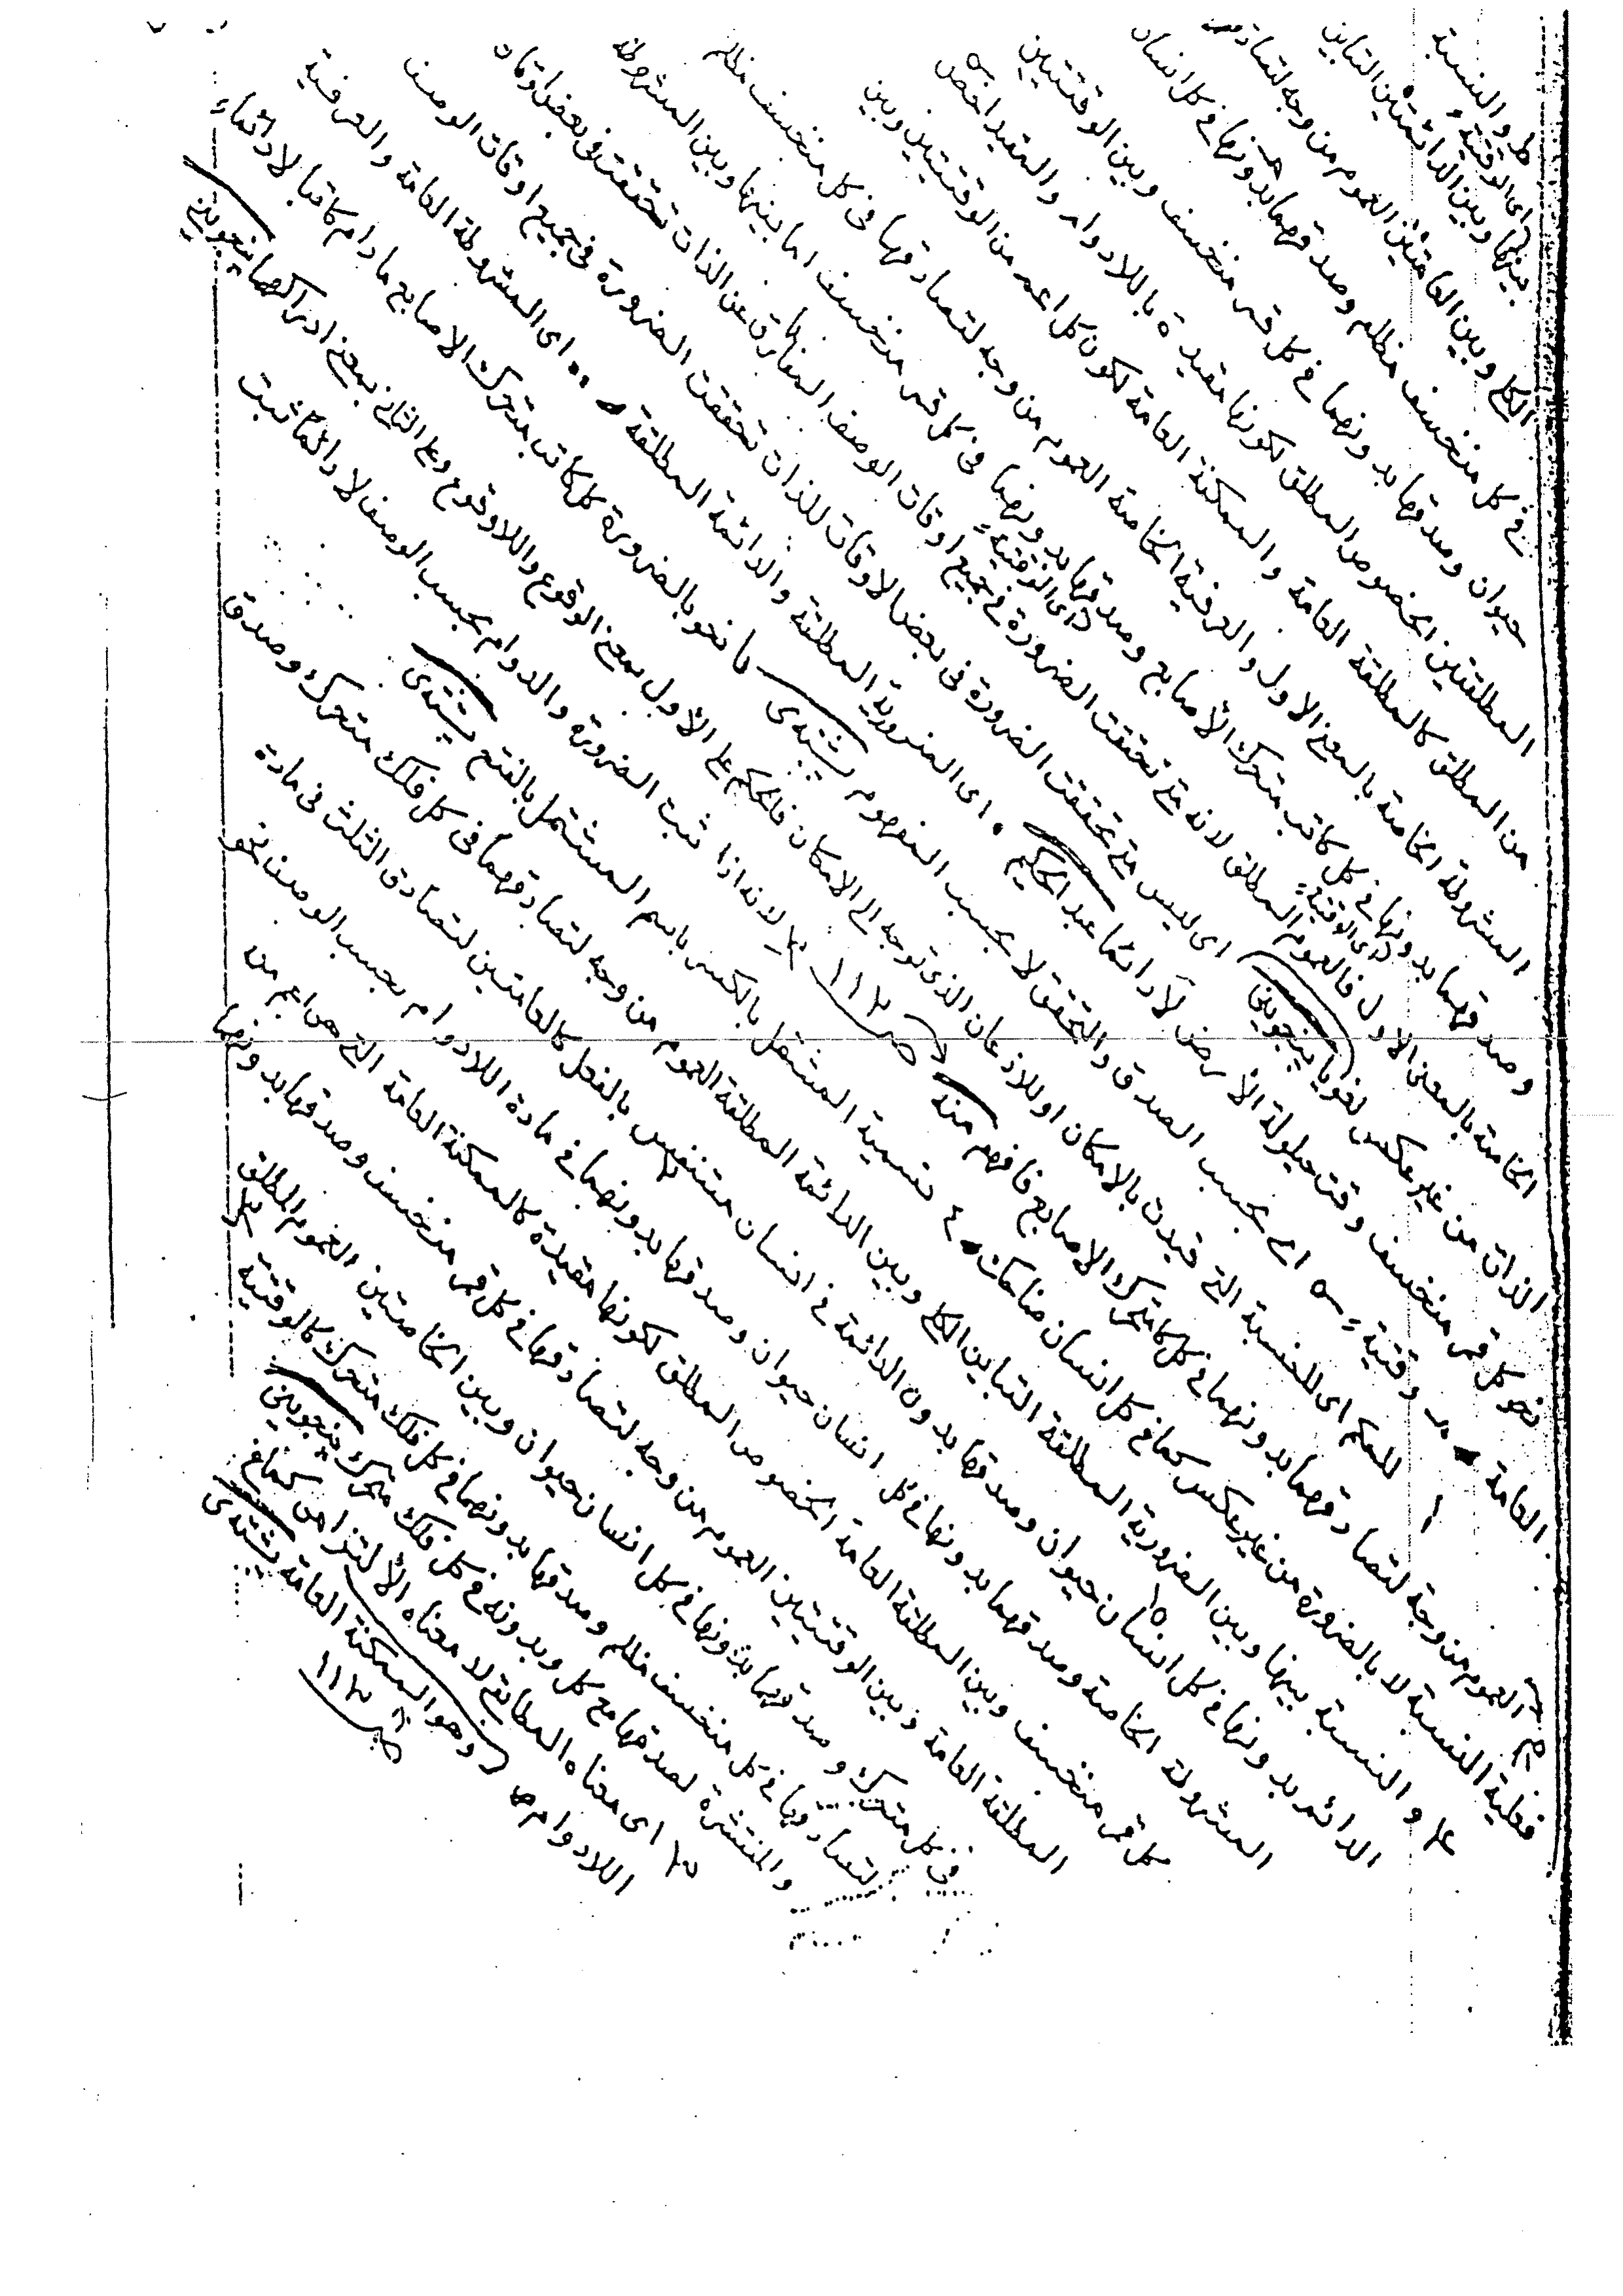 والنسبة
اى الوقتية
بينها وبين الدائمتين التباين
الكلي وبين العامتين العموم من وجه
في كل منخسف مظلم وصدقهما بدونها في كل انسان
حيوان وصدقها بدونهما في كل قمر منخسف وبين الوقتيتين
المطلقتين الخصوص المطلق لكونها مقيدة باللادوام والمقيد اخص
من المطلق كالمطلقة العامة والممكنة العامة لكون كل اعم من الوقتيتين وبين
المشروطة الخاصة بالمعنى الاول والعرفية الخاصة العموم من وجه لتصادقها في كل منخسف مظلم
وصدقهما بدونها في كل كاتب متحرك الأصابع وصدقها بدونهما في كل قمر منخسف اما بينها وبين المشروطة
الخاصة بالمعنى الاول فالعموم المطلق لانه متى تحققت الضرورة في جميع اوقات الوصف المفارق عن الذات تحققت في بعض اوقات
الذات من غير عكس لغويا ينجويني اى ليس متى تحققت الضرورة في بعض الاوقات للذات تحققت الضرورة في جميع اوقات الوصف
نحو كل قمر منخسف وقت حيلولة الأرض لا دائما عبد الحكيم اى الضرورية المطلقة والدائمة المطلقة اى المشروطة العامة والعرفية
العامة وقتية اى بحسب الصدق والتحقق لا بحسب المفهوم يشتدى نحو بالضرورة كل كاتب متحرك الاصابع ما دام كاتبا لا دائما
١ للحكم اى للنسبة التي قيدت بالامكان او للاذعان الذى توجه الى الامكان فالحكم على الأول بمعنى الوقوع واللاوقوع وعلى الثاني بمعنى ادراكهما ينجويني
العموم من وجه لتصادقهما بدونهما في كل متحرك الاصابع فافهم منه ص ١١٢ لانه اذا ثبت الضرورة والدوام بحسب الوصف لا دائما ثبت
فعلية النسبة لا بالضرورة من غير عكس كما في كل انسان ضاحك ٤ تسمية المشتمل بالكسر باسم المشتمل بالفتح يشتدى
والنسبة بينها وبين الضرورية المطلقة التباين الكلي وبين الدائمة المطلقة العموم من وجه لتصادقهما في كل فلك متحرك وصدق
الدائم بدونها في كل انسان حيوان وصدقها بدون الدائمة في انسان متنفس بالفعل كالعامتين لتصادق الثلث في مادة
المشروطة الخاصة وصدقهما بدونها في كل انسان حيوان وصدقها بدونهما في مادة اللادوام بحسب الوصف نحو
كل قمر منخسف وبين المطلقة العامة الخصوص المطلق لكونها مقيدة كالممكنة العامة التي هى اعم من
المطلقة العامة وبين الوقتيتين العموم من وجه لتصادقها في كل قمر منخسف وصدقها بدونهما
في كل متحرك وصدقهما بدونها في كل انسان حيوان وبين الخاصتين العموم المطلق
لتصادقها في كل منخسف مظلم وصدقها بدونهما في كل فلك متحرك كالوقتية
والمنتشرة لصدقها مع كل وبدونه في كل فلك متحرك ينجويني
اى معناه المطابقي لا معناه الالتزامى كما في
اللادوام وهو الممكنة العامة يشتدى
ص ١١٢